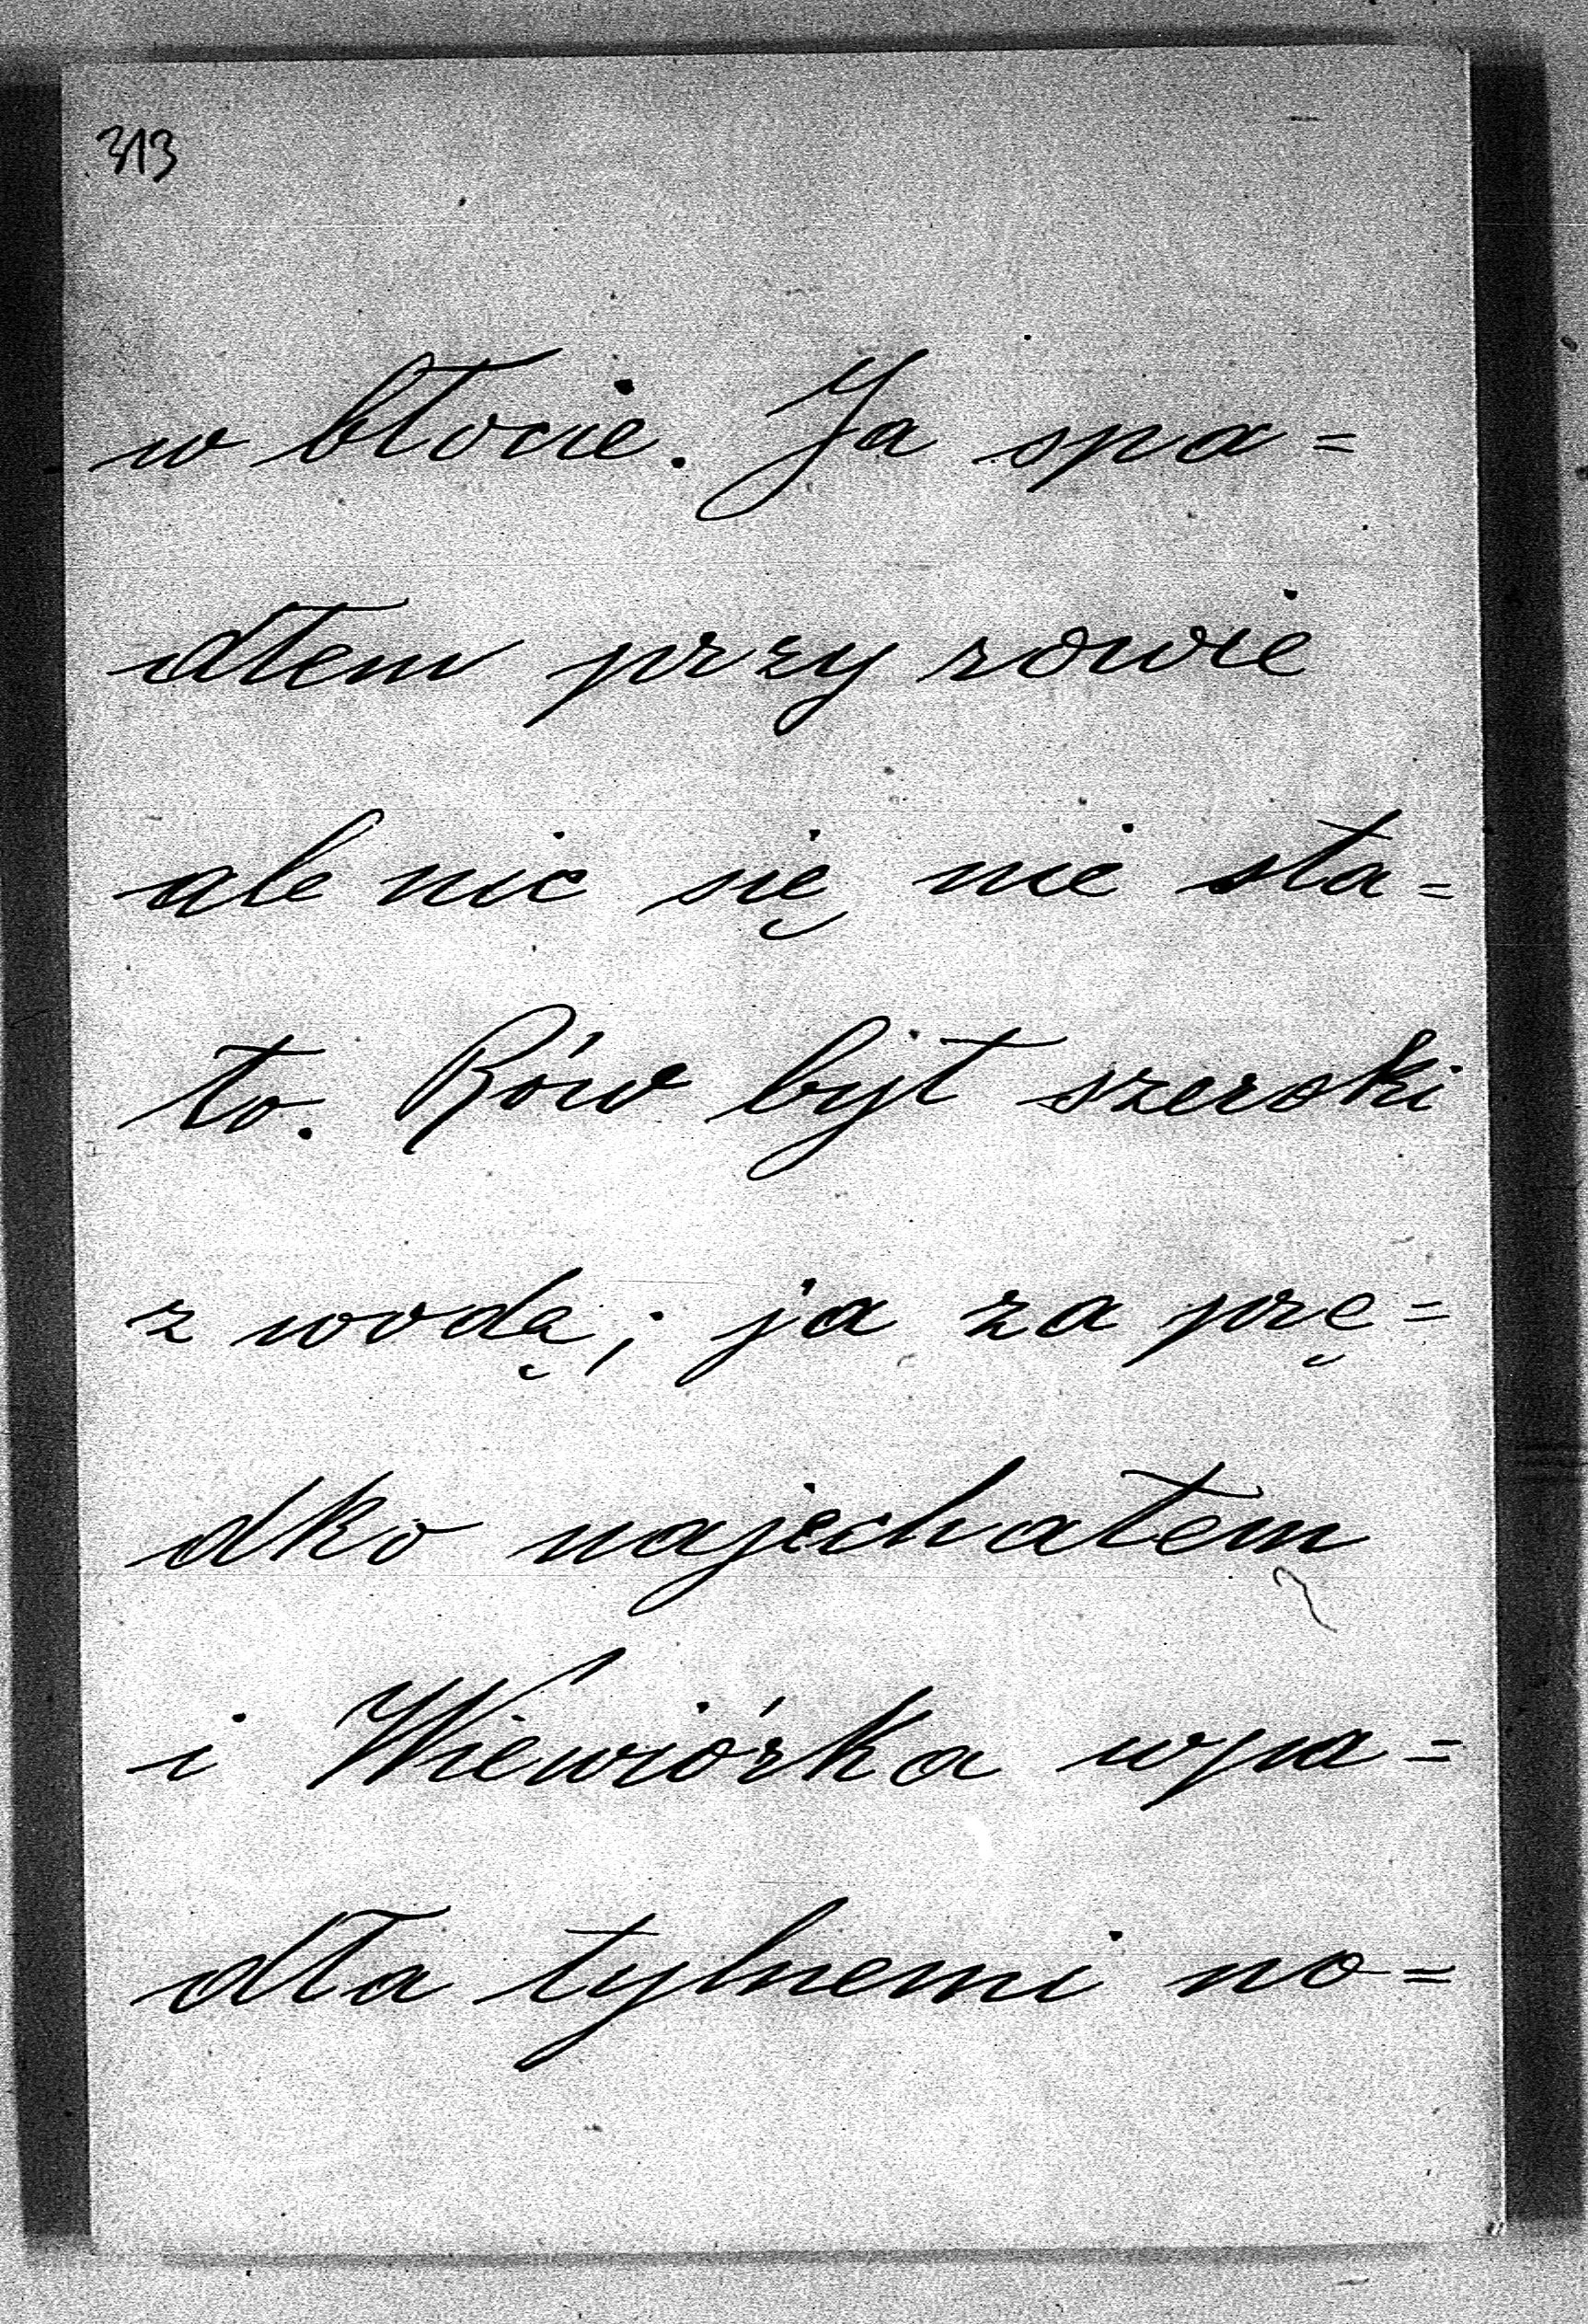 313
w błocie. Ja spa=
dłem przy rowie
ale nic się nie sta=
ło. Rów był szeroki
z wodą; ja za prę=
dko najechałem
i Wiewiórka wpa=
dła tylnemi no=